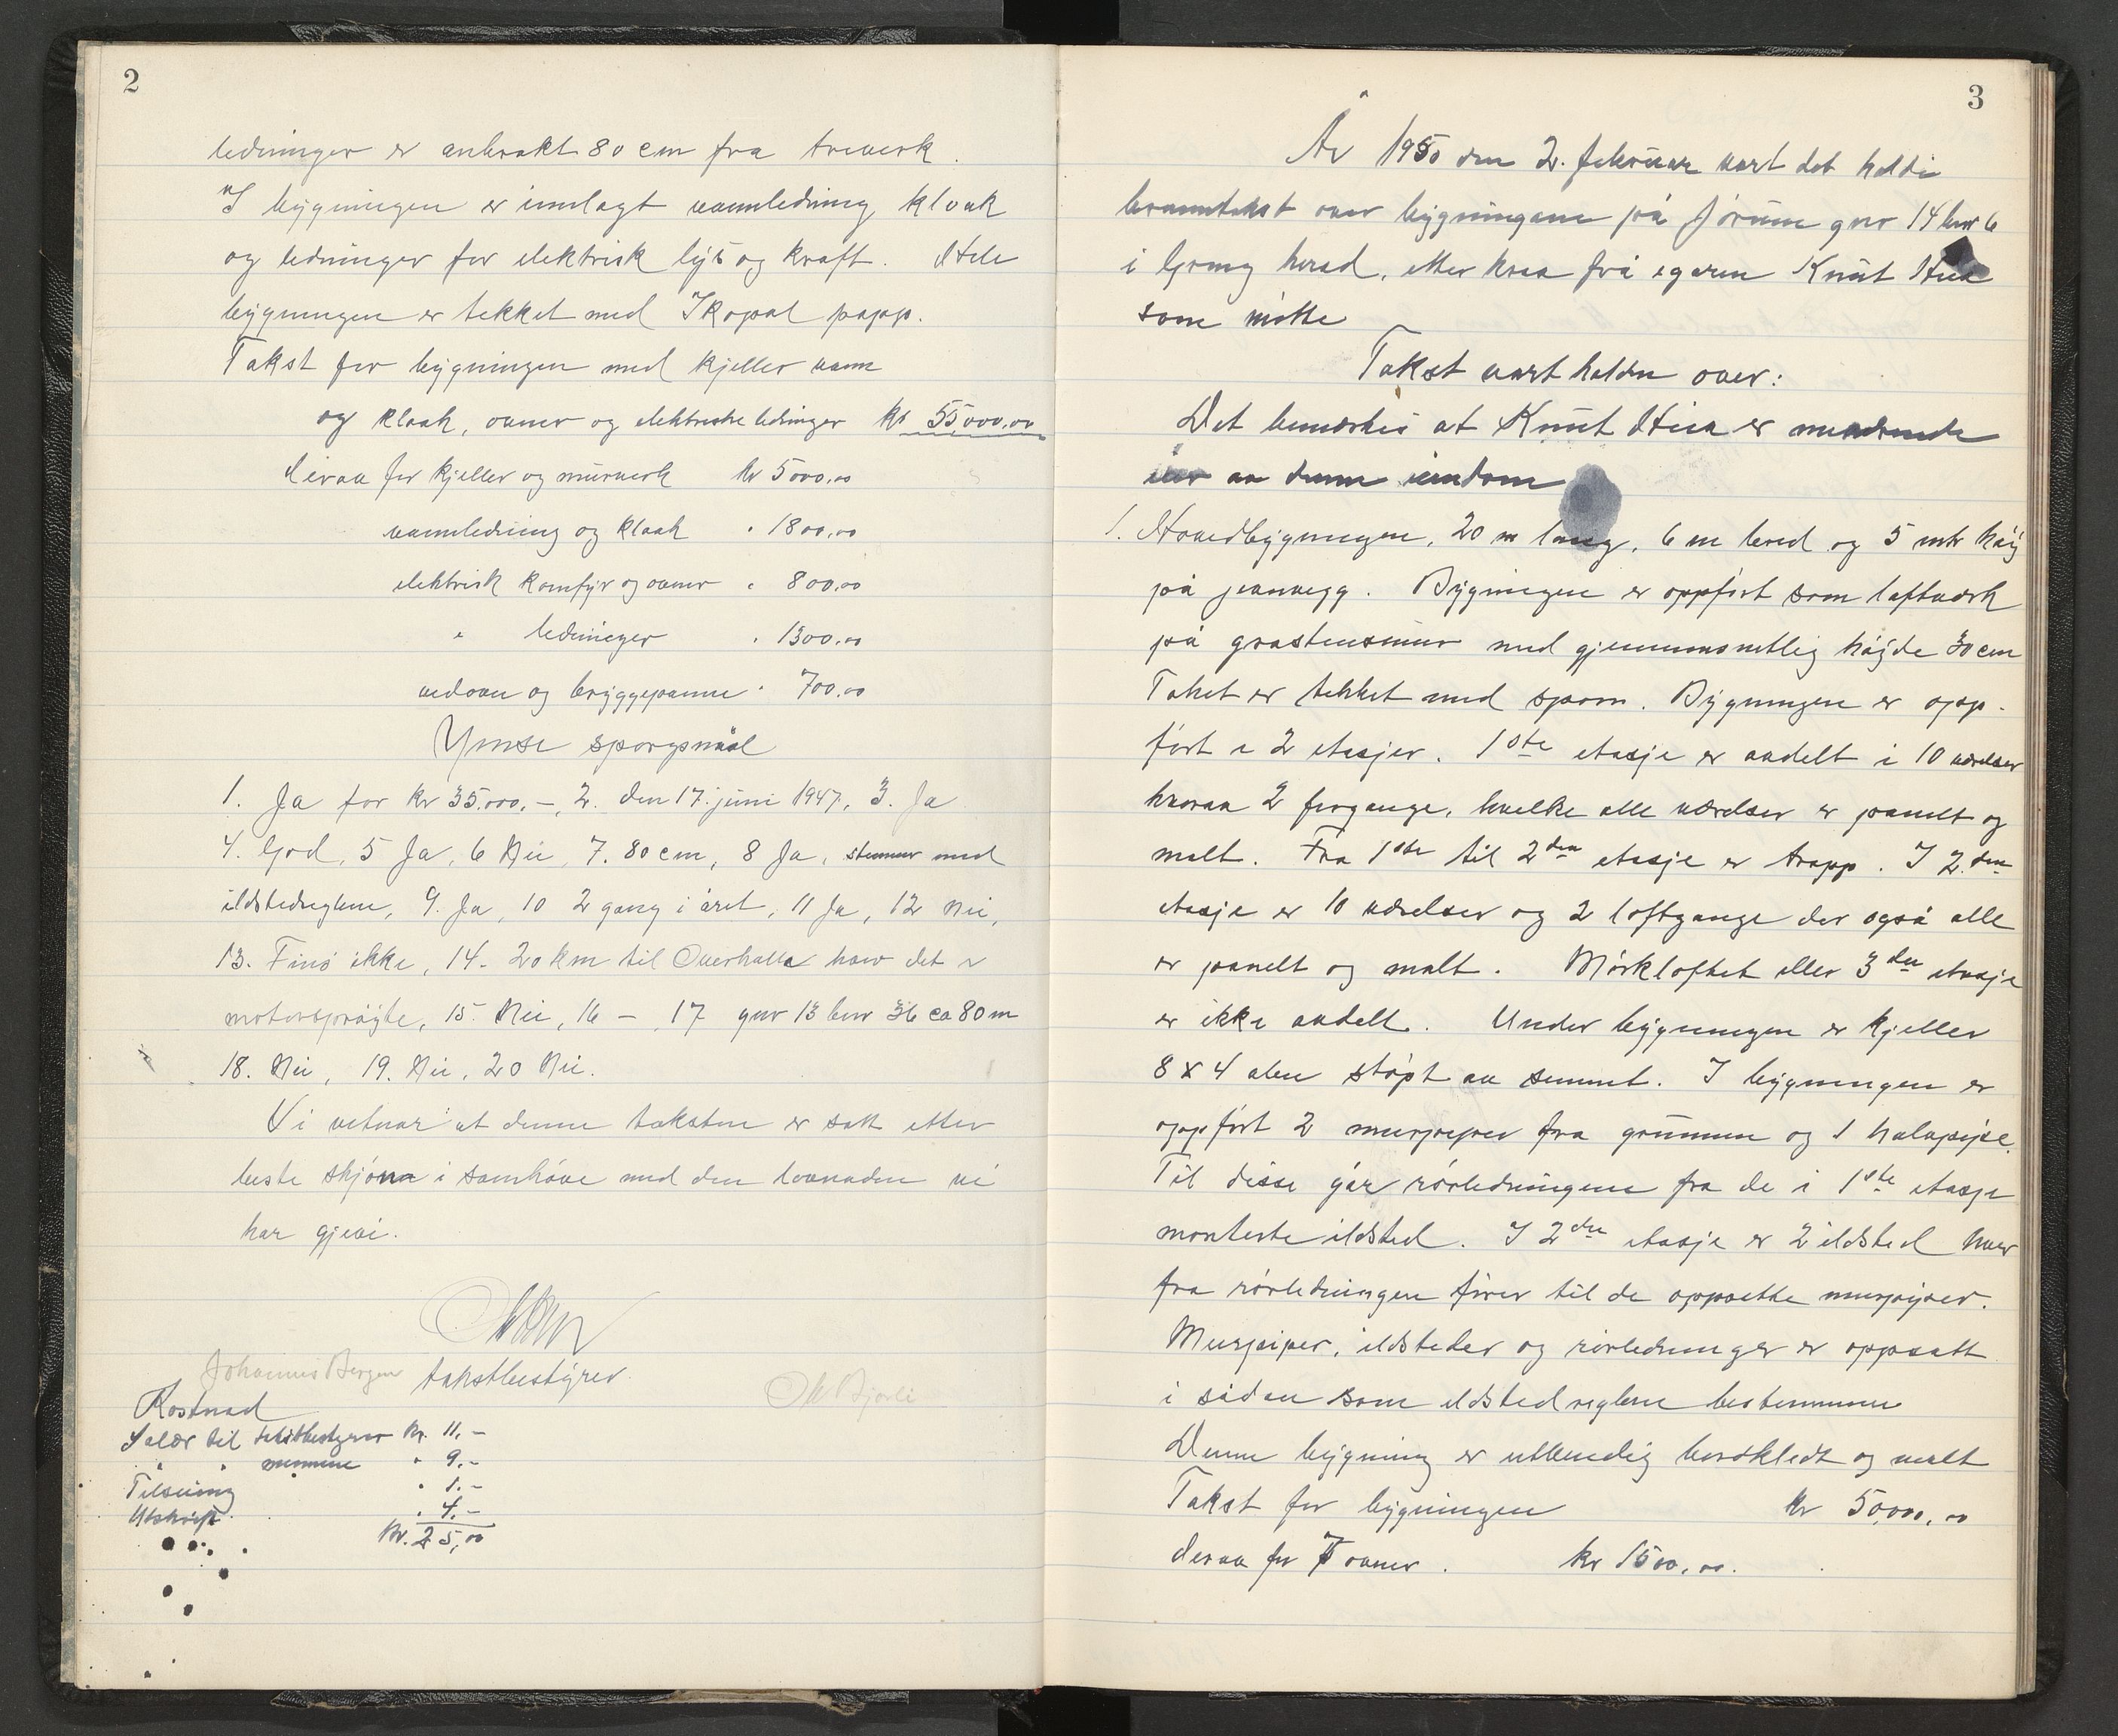 2
ledninger er anbrakt 80 cm fra treverk.
I bygningen er innlagt vannledning kloak
og ledninger for elektrisk lys og kraft. Hele
bygningen er tekket med Ikopal papp.
Takst for bygningen med kjeller vann
og kloak, ovner og elektriske ledninger kr 55000,00
derav for kjeller og murverk kr 5000,00
vannledning og kloak " 1800,00
elektrisk komfyr og ovner " 800,00
" ledninger " 1300,00
vedovn og bryggepanne " 700,00
Ymse sporgsmål
1. Ja for kr 35.000,-, 2. den 17. juni 1947, 3. Ja
4. God, 5 Ja, 6 Nei, 7. 80 cm, 8 Ja, stemmer med
ildstedreglene, 9. Ja, 10 2 gang i året, 11 Ja, 12 Nei,
13. Fins ikke, 14. 20 km til Overhalla hvor det er
motorsprøyte, 15 Nei, 16 - 17 gnr 13 bnr 36 ca 80 m
18. Nei, 19. Nei, 20 Nei.
Vi vitnar at denne taksten er satt etter
beste skjønn i samhøve med den lovnaden vi
har gjevi.
Johannes Bergen takstbestyrer
Kostnad
Salær til takstbestyrer kr. 11,-
" " mennene " 9.-
Tilsising " 1.-
Utskrift " 4.-
Kr. 25,00
3
År 1950 den 2. februar vart det haldi
branntakst over bygningane på Jørum gnr 14 bnr 6
i Grong herad, etter krav frå egaren Knut
som møtte
Takst vart halden over:
Det bemerkes at Knut er
av denne eiendom
1. Hovedbygningen, 20 m lang, 6 m bred og 5 mtr høy
på jeanvegg. Bygningen er oppført som laftverk
på grastensmur med gjennomsnitlig høyde 30 cm
Taket er tekket med spon. Bygningen er opp-
ført i 2 etasjer. 1ste etasje er avdelt i 10 værelser
hvorav 2 forgange, hvilke alle værelser er panelt og
malt. Fra 1ste til 2den etasje er trapp. I 2.den
etasje er 10 værelser og 2 loftgange der også alle
er panelt og malt. Mørkloftet eller 3den etasje
er ikke avdelt. Under bygningen er kjeller
8 x 4 alen støpt av sement. I bygningen er
oppført 2 murpiper fra grunnen og 1 halvpipe.
Til disse går rørledningene fra de i 1ste etasje
monterte ildsted. I 2den etasje er 2 ildsted hvor
fra rørledningen fører til de oppsette murpiper.
Murpiper, ildsteder og rørledninger er oppsatt
i sådan som ildstedreglene bestemmer
Denne bygning er utvendig bordkledt og malt
Takst for bygningen kr 50,000,00
derav for 7 ovner. kr 1500,00.